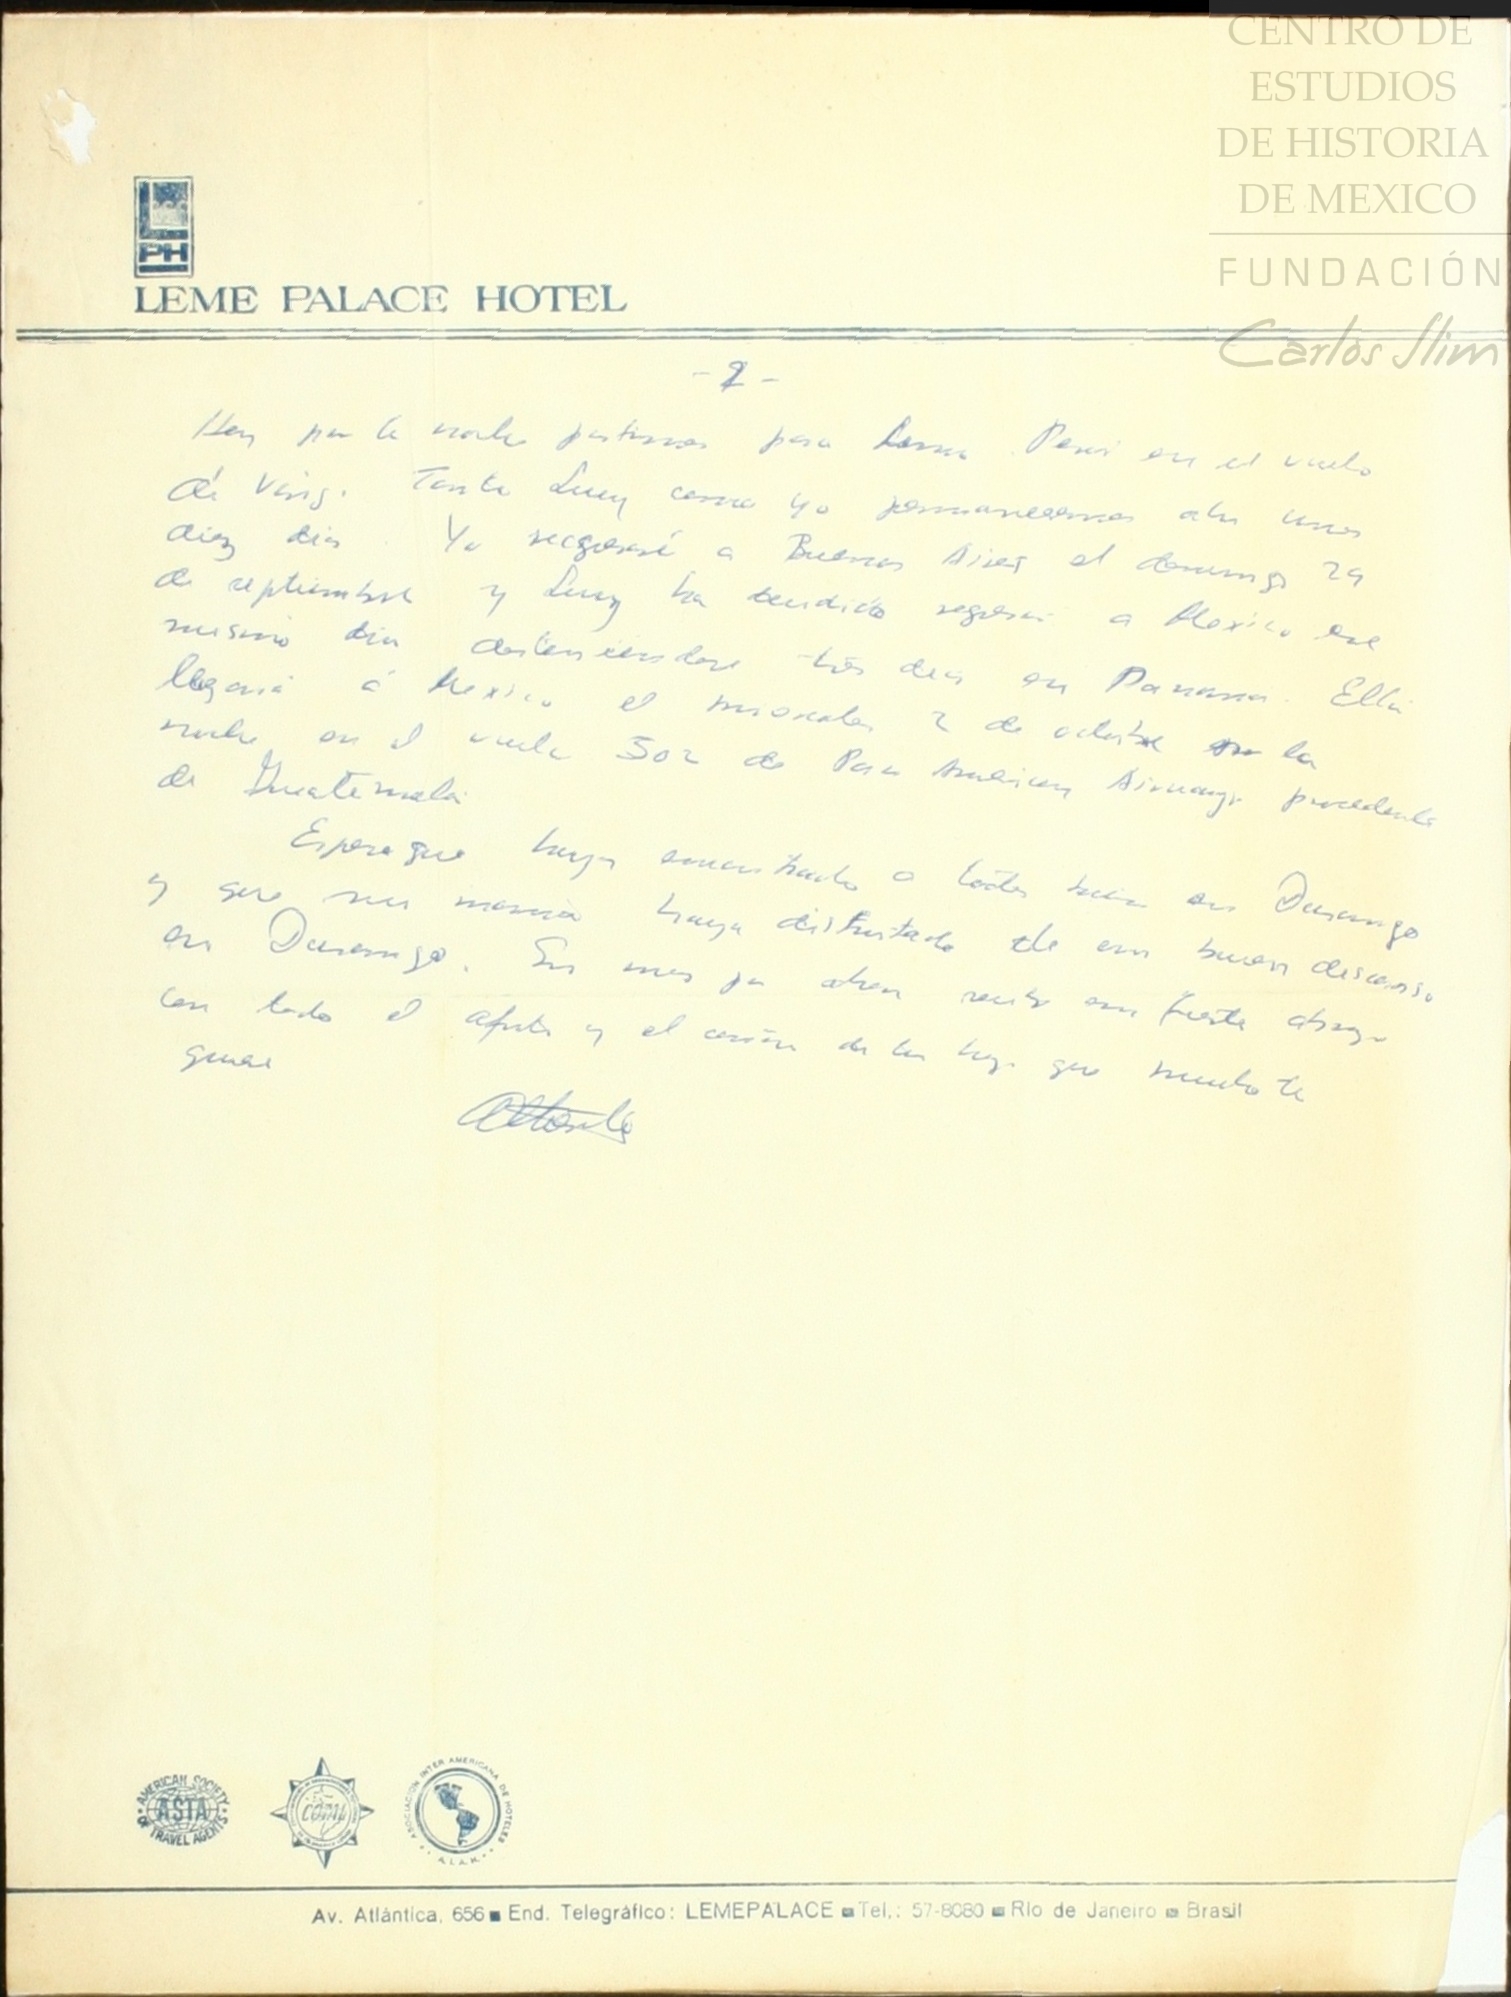 CENTRO DE
ESTUDIOS
DE HISTORIA
DE MEXICO
FUNDACIÓN
Carlos Slim
L
PH
LEME PALACE HOTEL
- 2 -
Hoy por la noche partimos para Lima Perú en el vuelo
de Varig. Tanto Lucy como yo permaneceremos ahi unos
diez dias. Yo regresaré a Buenos Aires el domingo 29
de septiembre y Lucy ha decidido regresar a Mexico ese
mismo dia deteniendose tres dias en Panama. Ella
llegará á Mexico el miercoles 2 de octubre en la
noche en el vuelo 502 de Pan American Airways procedente
de Guatemala
Espero que haya encontrado a todos bien en Durango
y que mi mamá haya disfrutado de un buen descanso
en Durango. Sin mas por ahora recibe un fuerte abrazo
con todo el afecto y el cariño de tu hijo que mucho te
quiere
AMERICAN SOCIETY
ASTA
OF TRAVEL AGENTS
COTAL
ASOCIACION INTER AMERICANA DE HOTELES
A.I.A.H.
Av. Atlântica, 656 ■ End. Telegráfico: LEMEPALACE ■ Tel.: 57-8080 ■ Rio de Janeiro ■ Brasil